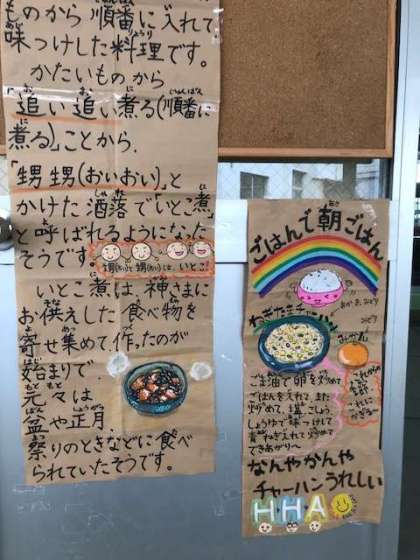 ものから順番に入れて、
味つけした料理です。
かたいものから
追い追い煮る(順番に
煮る)ことから、
「甥甥(おいおい)」と
かけた洒落で「いとこ煮」
と呼ばれるようになった
そうです。
いとこ煮は、神さまに
お供えした食べ物を
寄せ集めて作ったのが
始まりで、
元々は
盆や正月、
祭りのときなどに食べ
られていたそうです。
ごはんで朝ごはん
ねぎたまチャーハン
みかん
ごま油で卵を炒めて
ごはんを入れて、また
炒めて、塩こしょう、
しょうゆで味つけして
青ねぎ入れて炒めて
できあがり〜
なんやかんや
チャーハンうれしい
HHA